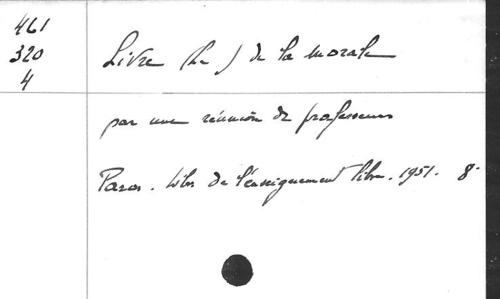 461
320
4
Livre (Le) de la morale
par une réunion de professeurs
Paris. Libr de l'enseignement libre. 1951. 8°